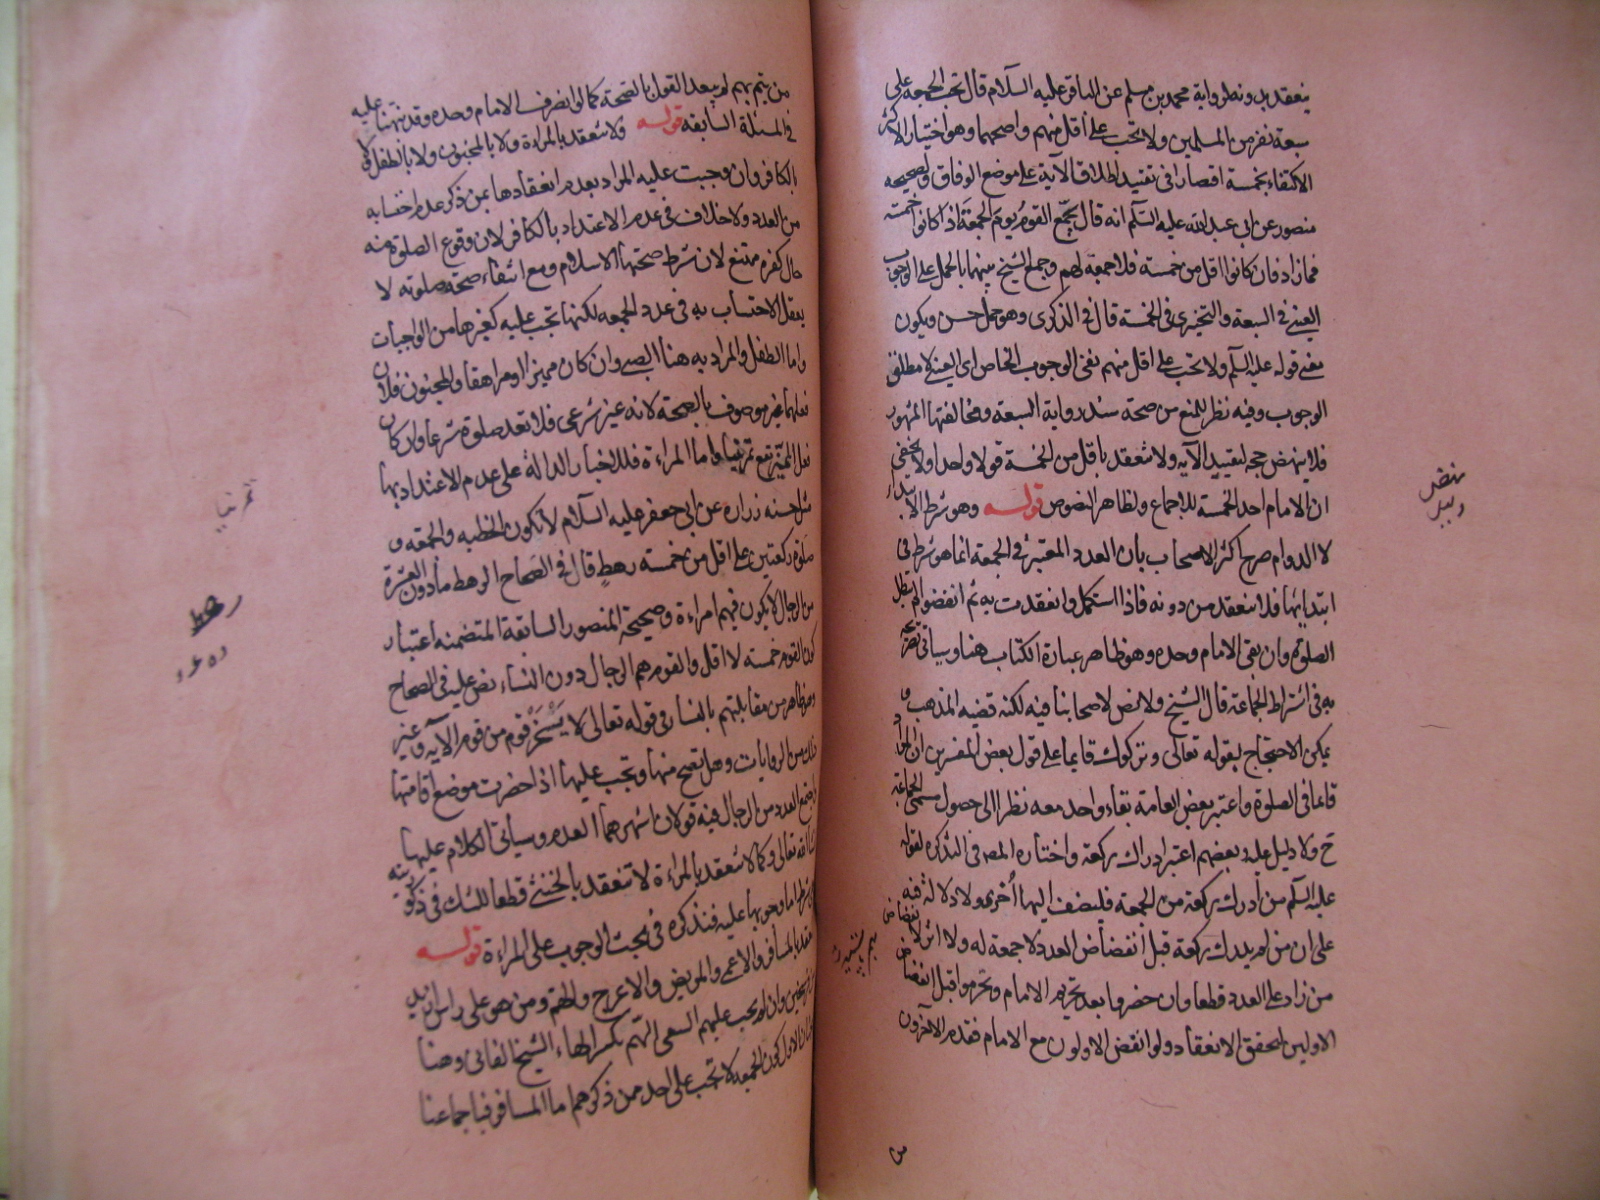 ينعقد بدونه لرواية محمد بن مسلم عن الباقر عليه السلام قال تجب الجمعة على
سبعة نفر من المسلمين ولا تجب على أقل منهم واصحهما وهو اختيار الاكثر
الاكتفاء بخمسة اقتصارا في تقييد اطلاق الآية على موضع الوفاق ولصحيحه
منصور عن ابي عبدالله عليه السلام انه قال يجمع القوم يوم الجمعة اذا كانوا خمسة
فمازاد فان كانوا اقل من خمسة فلا جمعة لهم وجمع الشيخ بينهما بالحمل على الوجوب
العيني في السبعة والتخييري في الخمسة قال في الذكرى وهو حمل حسن ويكون
معنى قوله عليه السلم ولا تجب على اقل منهم نفى الوجوب الخاص اى العيني لا مطلق
الوجوب وفيه نظر للمنع من صحة سند رواية السبعة ومخالفتها المشهور
فلا ينهض حجه لتقييد الآيه ولا تنعقد باقل من الخمسة قولا واحدا ولا يخفى
ان الامام احد الخمسة للاجماع ولظاهر النصوص قوله وهو شرط الابتداء
لا الدوام صرح اكثر الاصحاب بان العدد المعتبر في الجمعة انما هو شرط في
ابتدائها فلا تنعقد من دونه فاذا استكمل وانعقدت به ثم انفضوا لم تبطل
الصلوة وان بقى الامام وحده وهو ظاهر عبارة الكتاب هنا وسياتى تصريحه
به في اشتراط الجماعة قال الشيخ ولا نص لاصحابنا فيه لكنه قضيه المذهب و
يمكن الاحتجاج بقوله تعالى وتركوك قايما على قول بعض المفسرين ان المراد
قايما في الصلوة واعتبر بعض العامة بقاء واحد معه نظرا الى حصول مسمى الجماعة
ح ولا دليل عليه وبعضهم اعتبر ادراك ركعة واختاره المص في التذكره لقوله
عليه السلم من أدرك ركعة من الجمعة فليضف اليها أخرى ولا دلالة فيه
على ان من لم يدرك ركعة قبل أنفضاض العدد لا جمعة له ولا اثر لانفضاض
من زاد على العدد قطعا وان حضروا بعد تحريم الامام وتحرموا قبل انفضاض
الاولين لتحقق الانعقاد ولو انفض الاولون مع الامام فقدم الآخرون
من
من يتم بهم لم يبعد القول بالصحة كما لو انصرف الامام وحده وقد نبهنا عليه
في المسئلة السابقه قوله ولا تنعقد بالمراءة ولا بالمجنون ولا بالطفل ولا
بالكافر وان وجبت عليه المراد بعدم انعقادها بمن ذكر عدم احتسابه
من العدد ولا خلاف في عدم الاعتداد بالكافر لان وقوع الصلوة منه
حال كفره ممتنع لان شرط صحتها الاسلام ومع انتفاء صحة صلوته لا
يعقل الاحتساب به في عدد الجمعه لكنها تجب عليه كغيرها من الواجبات
واما الطفل والمراد به هنا الصبي وان كان مميزا او مراهقا والمجنون فلان
فعلهما غير موصوف بالصحة لانه غير شرعى فلا تعد صلوة شرعا وان كان
فعل المميز يقع تمرينيا واما المراءة فللاخبار الدالة على عدم الاعتداد بها
مثل حسنه زراره عن ابى جعفر عليه السلام لا تكون الخطبه والجمعه و
صلوة ركعتين على اقل من خمسة رهط قال في الصحاح الرهط مادون العشرة
من الرجال لا يكون فيهم امراءة وصحيحة المنصور السابقة المتضمنه اعتبار
كون القوم خمسه لا اقل والقوم هم الرجال دون النساء نص عليه في الصحاح
وهو ظاهر من مقابلتهم بالنساء في قوله تعالى لا يسخر قوم من قوم الآيه وغير
ذلك من الروايات وهل تصح منها وتجب عليها اذا حضرت موضع اقامتها
واجتمع العدد من الرجال فيه قولان اشهرهما العدم وسيأتى الكلام عليها
انشاءالله تعالى وكما لا تنعقد بالمراءة لا تنعقد بالخنثى قطعا للشك في ذكوريته
شرط اما وجوبها عليه فنذكره في بحث الوجوب على المراءة قوله
وتنعقد بالمسافر والاعمى والمريض والاعرج والهم ومن هو على راس ازيد
من فرسخين وان لم يجب عليهم السعى الهم بكسر الهاء الشيخ الفانى وهنا
الاول كون الجمعه لا تجب على احد ممن ذكرهم اما المسافر فباجماعنا